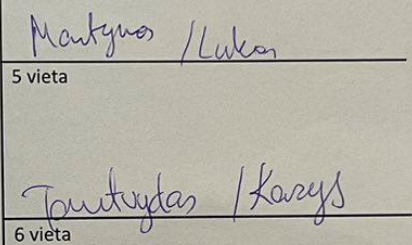 Martynas /Lukas
5 vieta
Tautvydas /Kazys
6 vieta